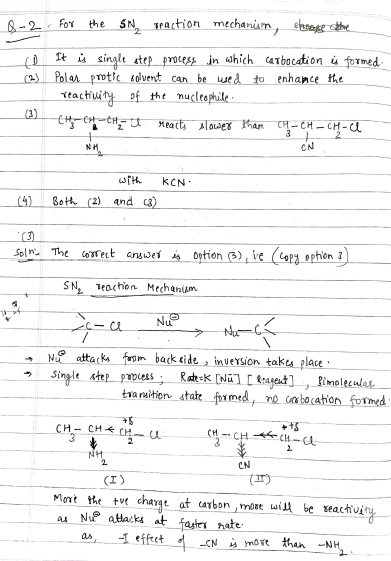 Q-2. For the SN2 reaction mechanism,
(1) It is single step process in which carbocation is formed.
(2) Polar protic solvent can be used to enhance the
reactivity of the nucleophile.
(3) CH3-CH-CH2-Cl reacts slower than CH3-CH-CH2-Cl
NH2 CN
with KCN.
(4) Both (2) and (3)
(3)
Soln- The correct answer is option (3), i.e (copy option 3)
SN2 reaction Mechanism
C-Cl Nu⊖ → Nu-C
→ Nu⊖ attacks from back side, inversion takes place.
→ Single step process; Rate=K [Nu] [Reagent], Bimolecular
transition state formed, no carbocation formed.
CH3-CH←CH2-Cl +δ CH3-CH←←CH2-Cl ++δ
NH2 CN
(I) (II)
More the +ve charge at carbon, more will be reactivity
as Nu⊖ attacks at faster rate.
as, -I effect of -CN is more than -NH2.